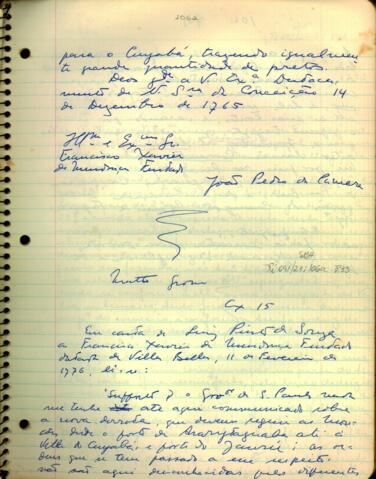 1062
para o Cuyabá, trazendo igualmen
te grande quantidade de pretos.
Deos gde a V. Exª. Destaca
mento de N. Srª da Conceição 14
de Dezembro de 1765
Illmo e Exmo Sr.
Francisco Xavier
de Mendonça Furtado
João Pedro da Camara
Matto Grosso
Cx 15
Em carta de Luiz Pinto de Souza
a Francisco Xavier de Mendonça Furtado
datada de Villa Bella, 11 de Fevereiro de
1776, li-se:
"Supposto q o Govor de S. Paulo nada
me tenha até aqui communicado sobre
a nova derrota, que devem seguir as
desde o porto de Araraytaguaba até á
Villa do Cuyabá, e porto do Janeiro; as or
dens que se tem passado a esse respeito
são aqui pelos differentes